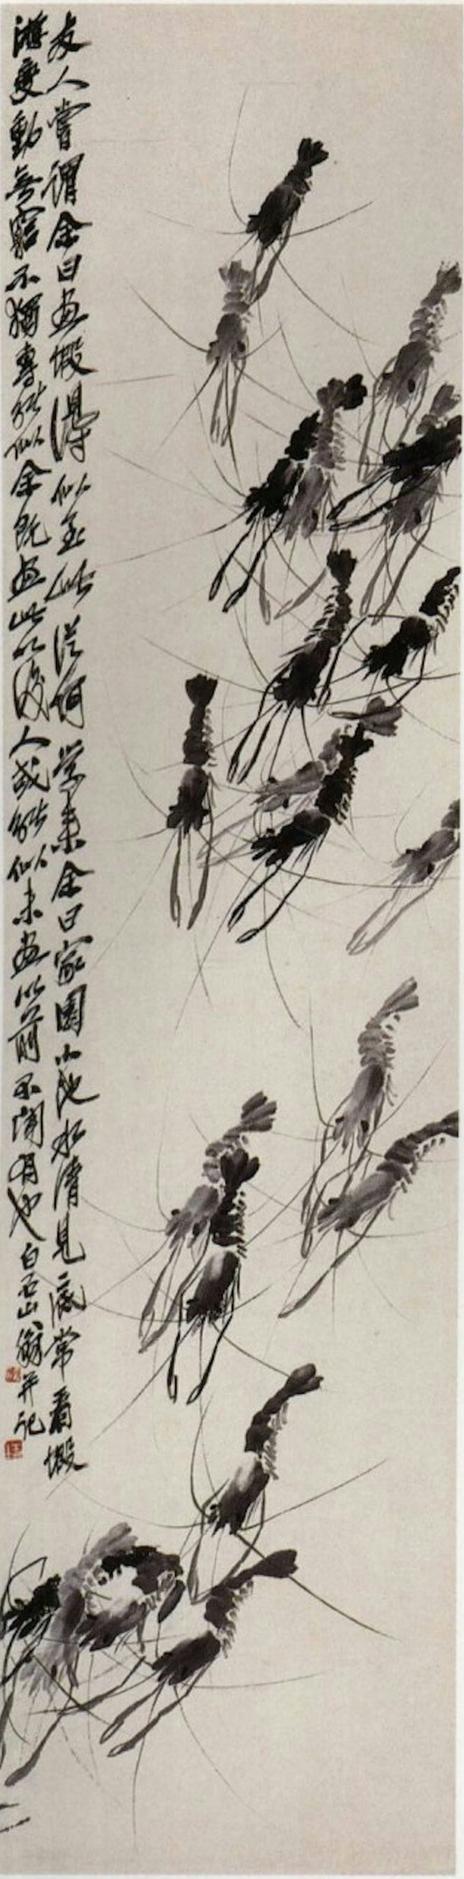 友人嘗謂余曰画蝦得似至此從何學来余曰家園小池水清見底常看蝦
游變動無窮不獨專能似余既画此以後人或能似未画以前不聞有也白石山翁并記